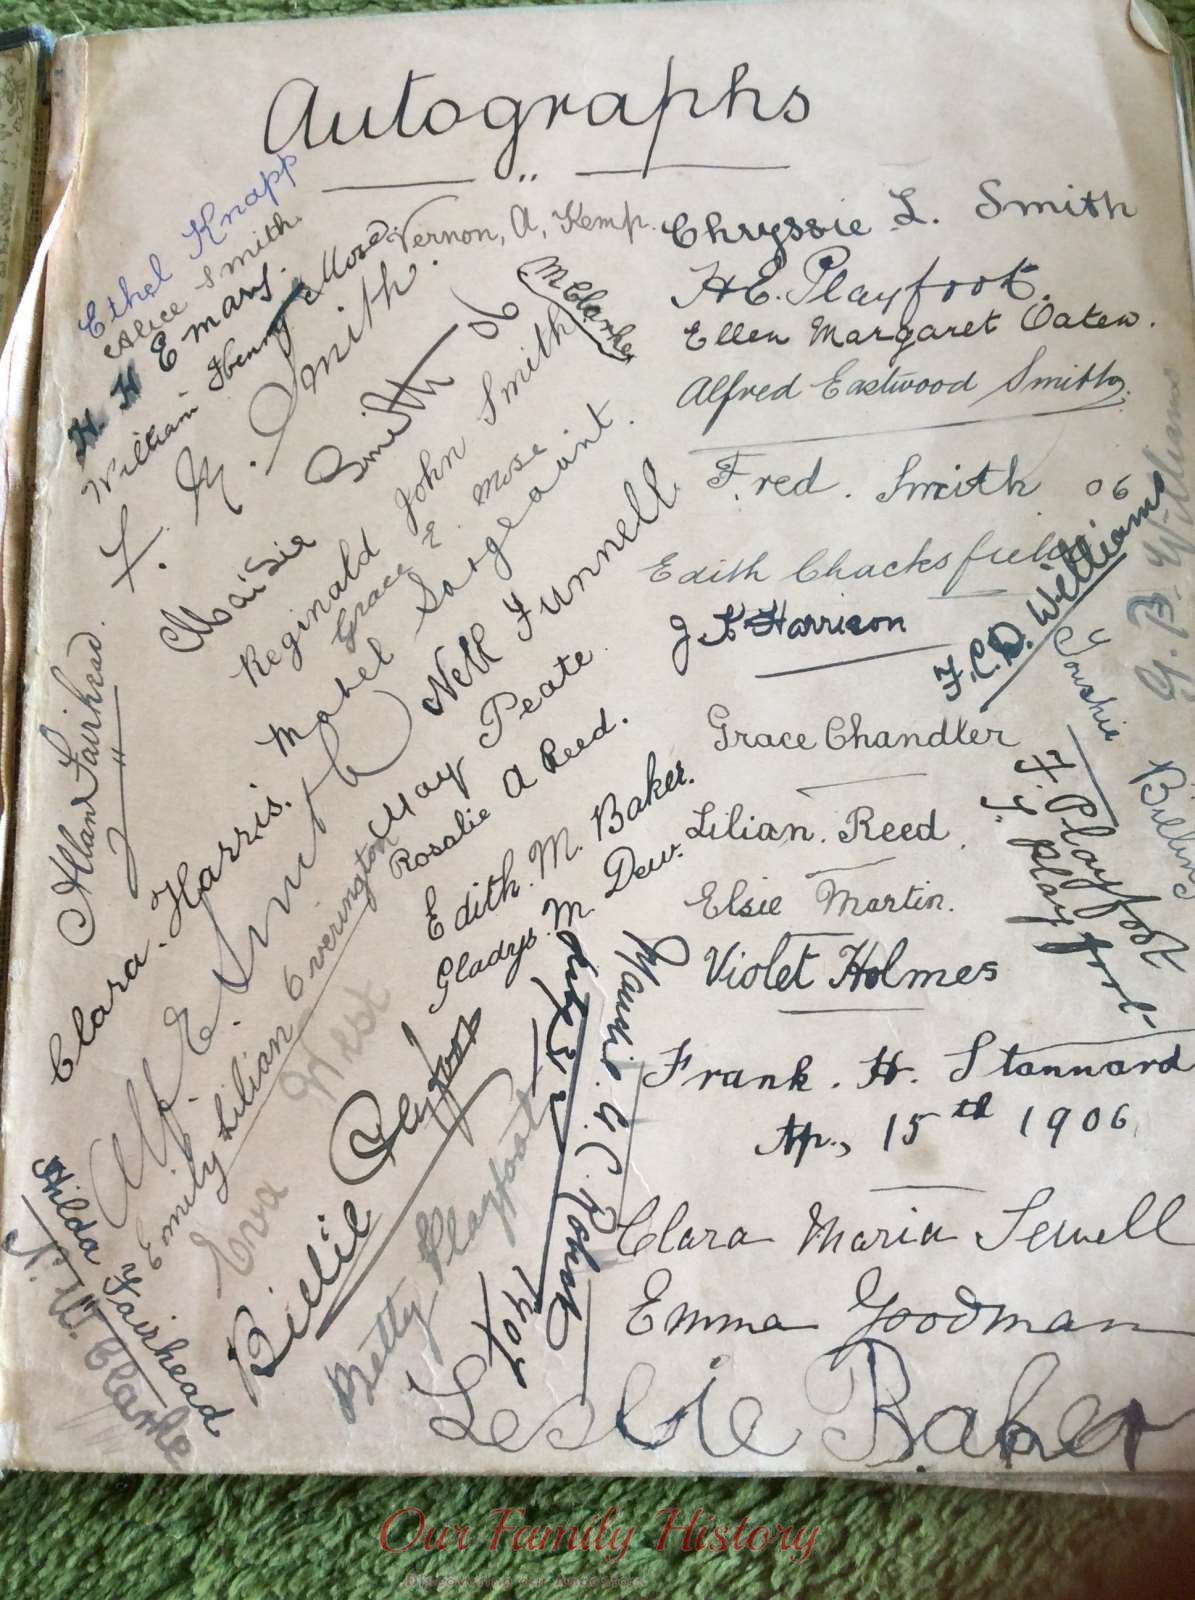 Autographs
Ethel Knapp
Alice Smith
H. H Emans.
William Henry Mose
Vernon, A, Kemp.
F. M. Smith.
Maisie Smith 06
M Clarke
Reginald John Smith
Grace E. Mose
Mabel Sargeaunt.
Nell Funnell.
Allan J Fairhead.
Clara. Harris.
Alf. E. Smith
May Peate
Rosalie A Reed.
Emily Lilian Overington
Edith. M. Baker.
Gladys. M. Dew.
Eva West
Billie Playfoot
Betty Playfoot
Hilda Fairhead
N. W. Clarke
Chryssie L. Smith
H E. Playfoot.
Ellen Margaret Oaten.
Alfred Eastwood Smith.
Fred. Smith 06
Edith Chacksfield
J K Harrison
F. C. D. Williams
G. B. Williams
Grace Chandler
F. Playfoot
Playfoot
Lilian. Reed.
Elsie Martin.
Violet Holmes
Frank. H. Stannard
Ap., 15th 1906
Clara Maria Sewell
Emma Goodman
Leslie Baker
Our Family History